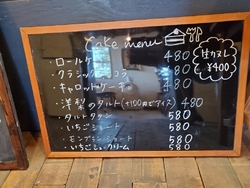 Cake menu
・ロールケーキ 480
・クラシックショコラ 480
・キャロットケーキ 480
・洋梨のタルト(+100円でアイス) 480
・タルトタタン 580
・いちごショート 580
・モンブラン 580
・いちごシュークリーム 580
生カヌレ
¥400